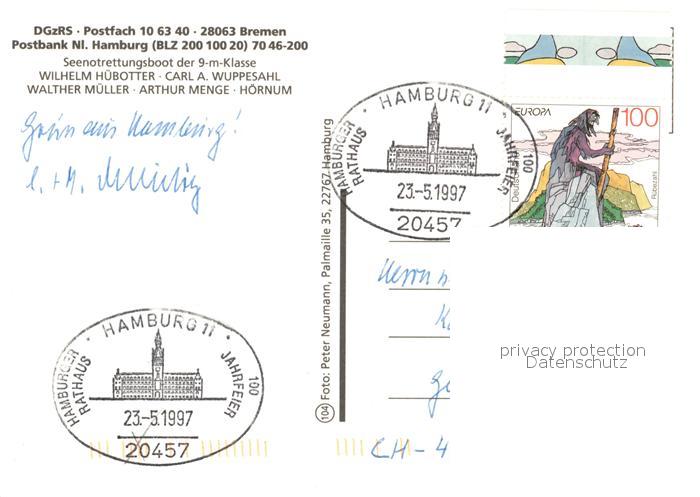 DGzRS · Postfach 10 63 40 · 28063 Bremen
Postbank Nl. Hamburg (BLZ 200 100 20) 70 46-200
Seenotrettungsboot der 9-m-Klasse
WILHELM HÜBOTTER · CARL A. WUPPESAHL
WALTHER MÜLLER · ARTHUR MENGE · HÖRNUM
aus Hamburg!
104 Foto: Peter Neumann, Palmaille 35, 22767 Hamburg
· HAMBURG 11 ·
HAMBURGER RATHAUS
100 JAHRFEIER
23.-5.1997
20457
EUROPA 100
Rübezahl
Herrn
CH-4
privacy protection
Datenschutz
· HAMBURG 11 ·
HAMBURGER RATHAUS
100 JAHRFEIER
23.-5.1997
20457